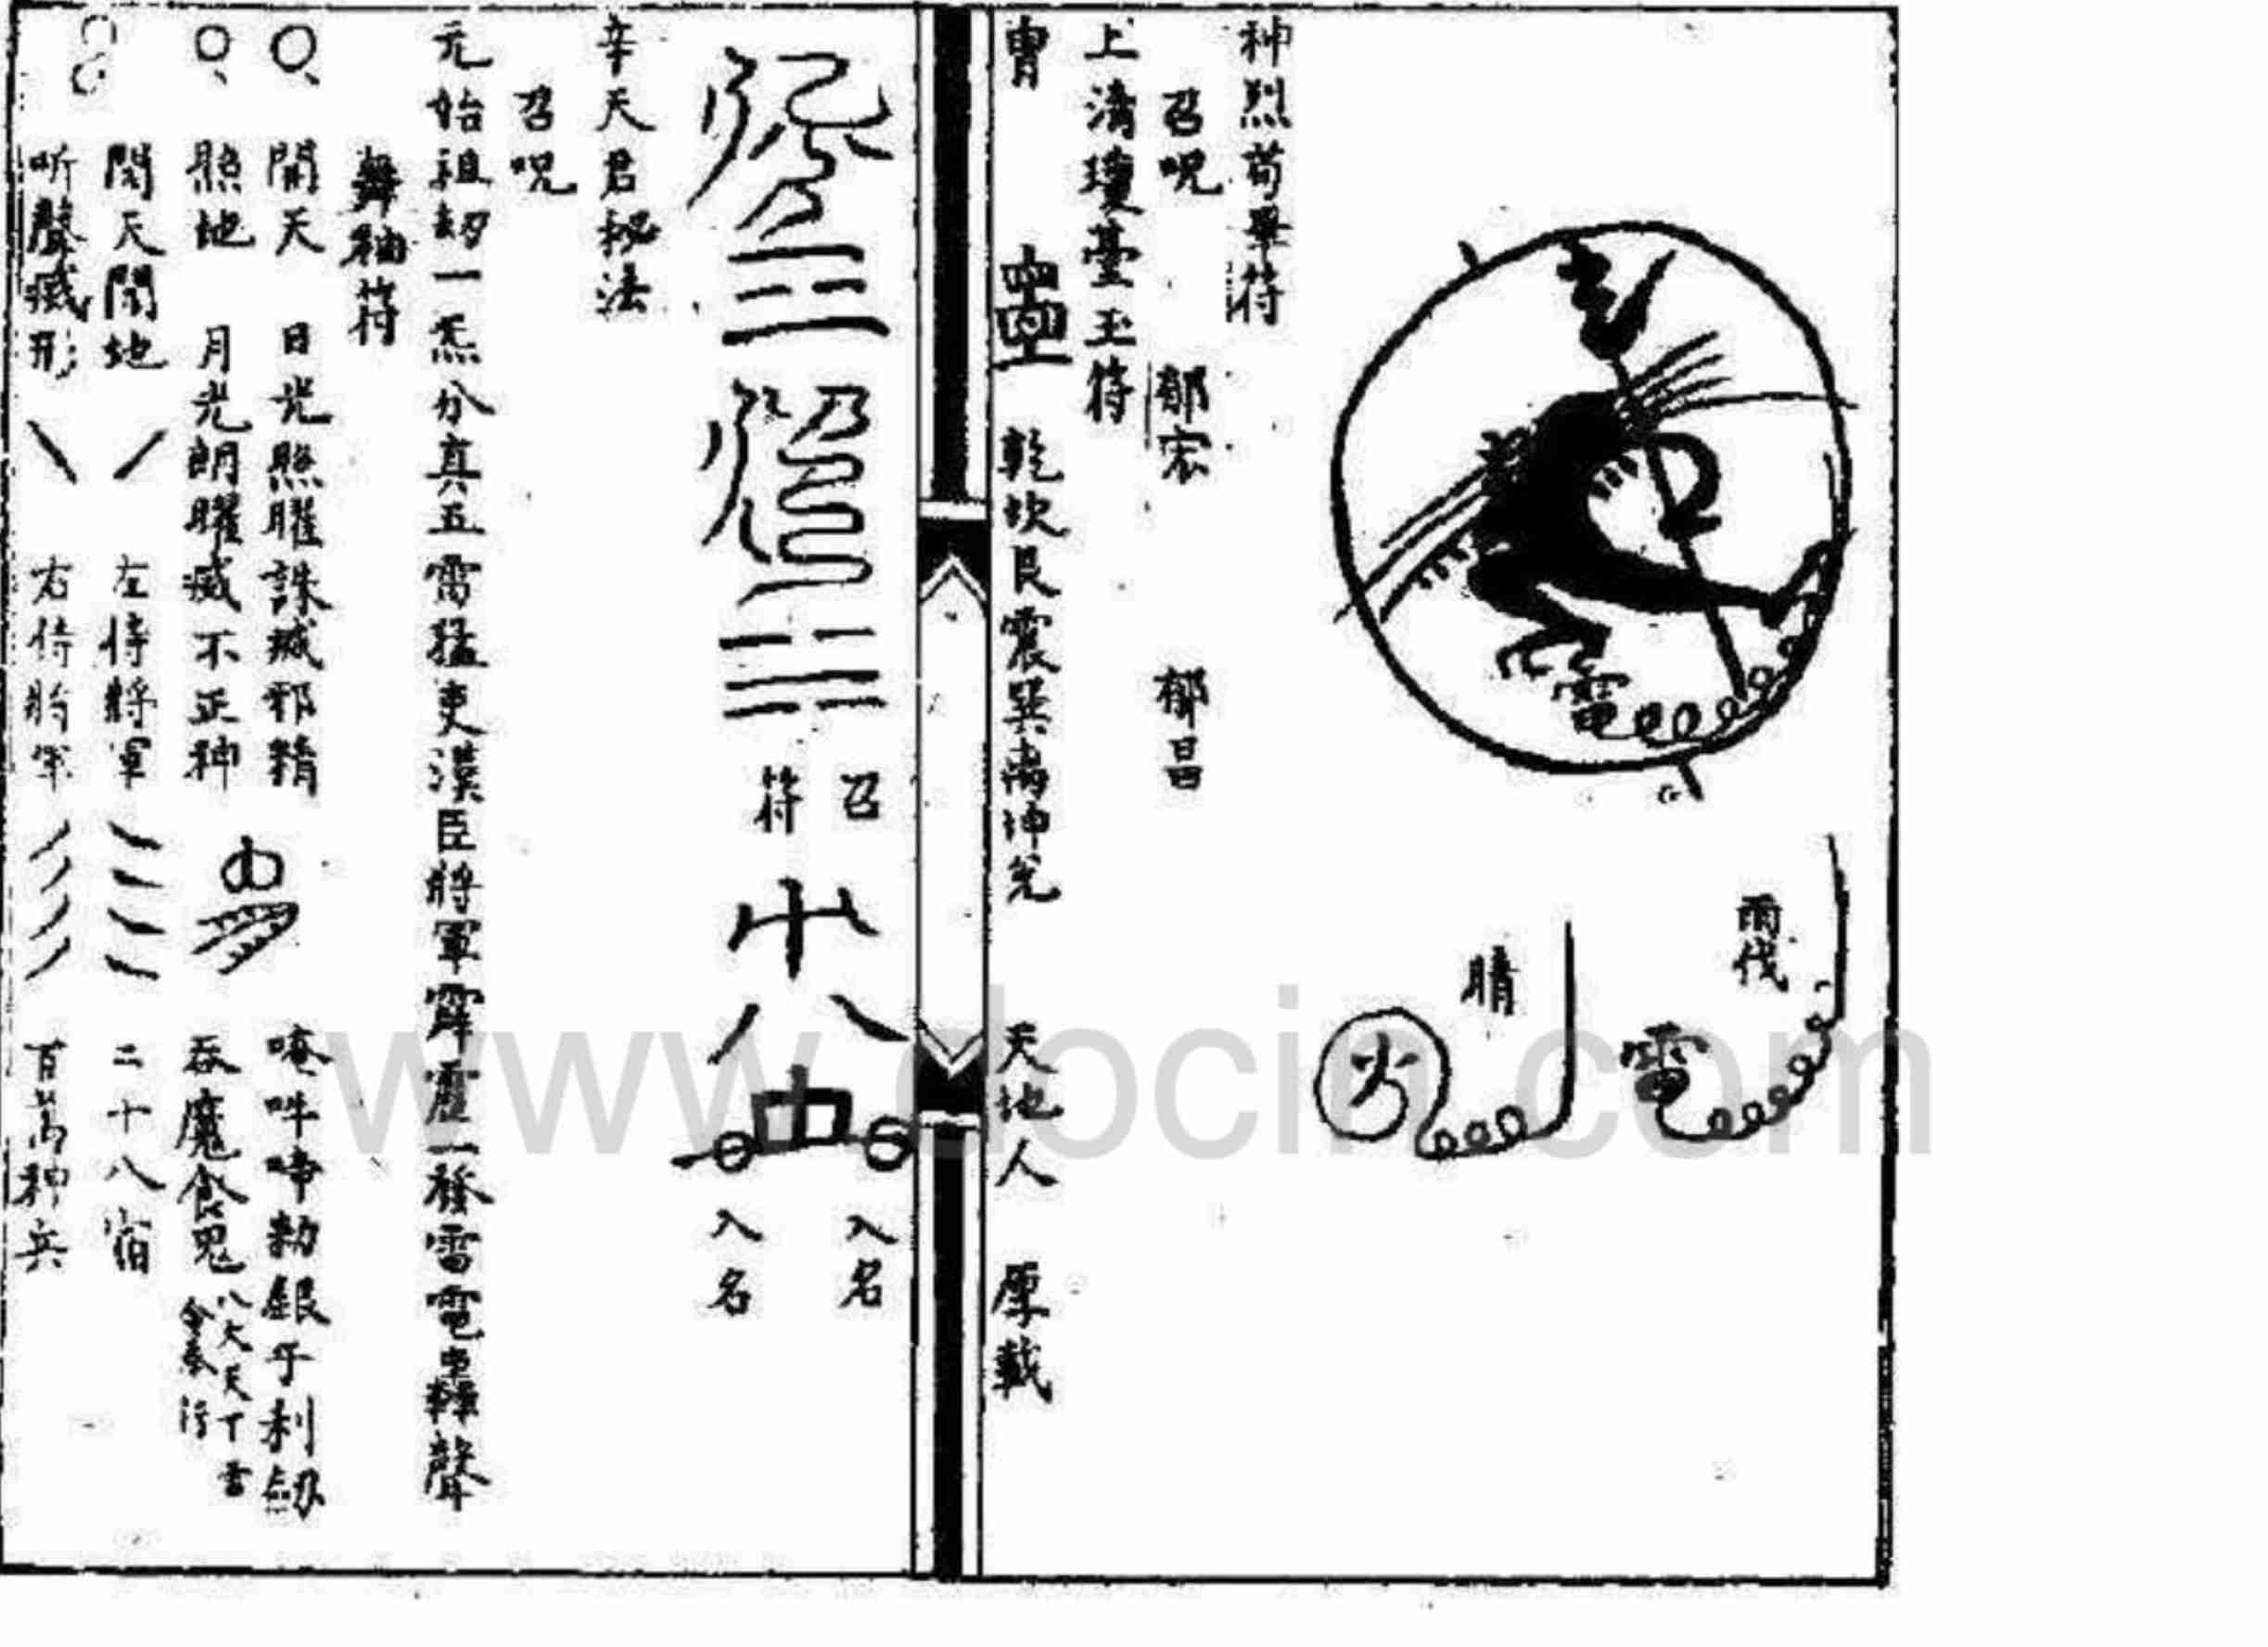 雨伐
晴
雷
火
雷
神烈苟畢符
召呪 郁宏 郁昌
上清瓊臺玉符
乾坎艮震巽离坤兌 天地人 厚載
召
符
入名
入名
辛天君秘法
召呪
元始祖刼一炁分真五雷猛吏漢臣將軍霹靂一發雷電轟聲
舞袖符
開天 日光照曜誅滅邪精 唵吽 勅銀牙利劒
照地 月光朗曜滅不正神 吞魔食鬼
聞天聞地 左侍將軍 二十八宿
听聲藏形 右侍將軍 百萬神兵
www.docin.com